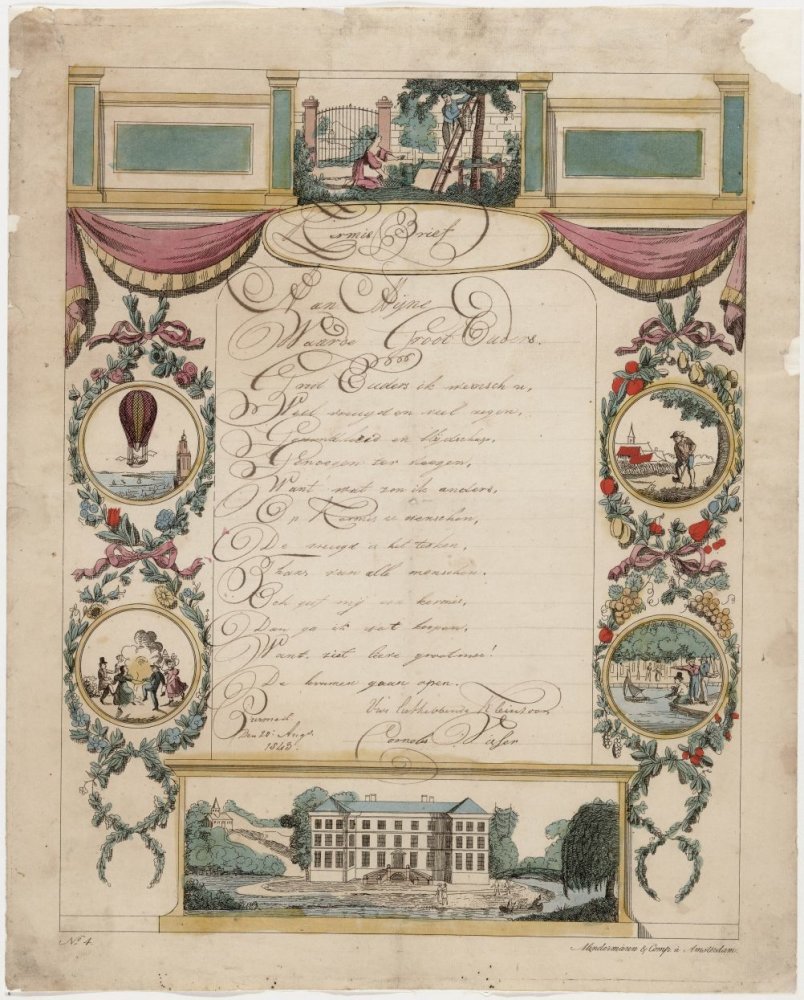 Kermis Brief
Aan Mijne
Waarde Groot Ouders.
Groot Ouders ik wensch u,
Veel vreugd en veel zegen,
Gezondheid en blydschap,
Genoegen ter deegen,
Want wat zou ik anders,
Op Kermis u wenschen,
De vreugd is het teeken,
Thans van alle menschen.
Och geef mij een kermis,
Dan ga ik wat koopen,
Want, ziet lieve grootmoe!
De kramen gaan open.
Uw liefhebbende Kleinzoon
Purmer
Den 20 Augs.
1843.
Cornelis Visser
No. 4.
& Comp. à Amsterdam.